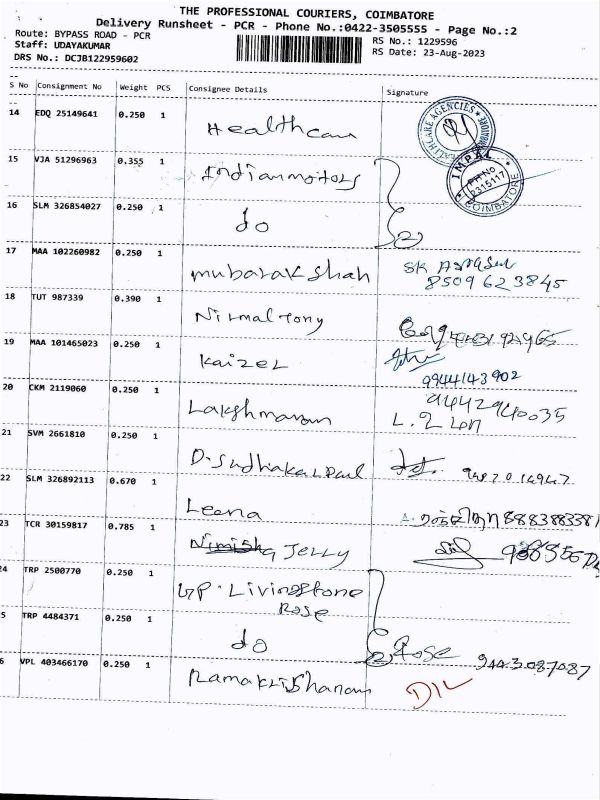 THE PROFESSIONAL COURIERS, COIMBATORE
Delivery Runsheet - PCR - Phone No.:0422-3505555 - Page No.:2
Route: BYPASS ROAD - PCR
RS No.: 1229596
Staff: UDAYAKUMAR
RS Date: 23-Aug-2023
DRS No.: DCJB122959602
S No Consignment No Weight PCS Consignee Details Signature
14 EDQ 25149641 0.250 1 Healthcare
HEALTHCARE AGENCIES COIMBATORE
15 VJA 51296963 0.355 1 Indianmotors
IMPAL
PH No
2315117
COIMBATORE
16 SLM 326854027 0.250 1 do
17 MAA 102260982 0.250 1 mubarak shah SK
8509623845
18 TUT 987339 0.390 1 Nirmal Tony
19 MAA 101465023 0.250 1 Kaizer
9944143902
20 CKM 2119060 0.250 1 Lakshmanan
9442940035
21 SVM 2661810 0.250 1 D. Sudhakar Paul
22 SLM 326892113 0.670 1 Leena
23 TCR 30159817 0.785 1 Jerry
24 TRP 2500770 0.250 1 GP. Livingstone
Rose
5 TRP 4484371 0.250 1 do
Rose 9443087087
6 VPL 403466170 0.250 1 Ramakrishanan
DIL